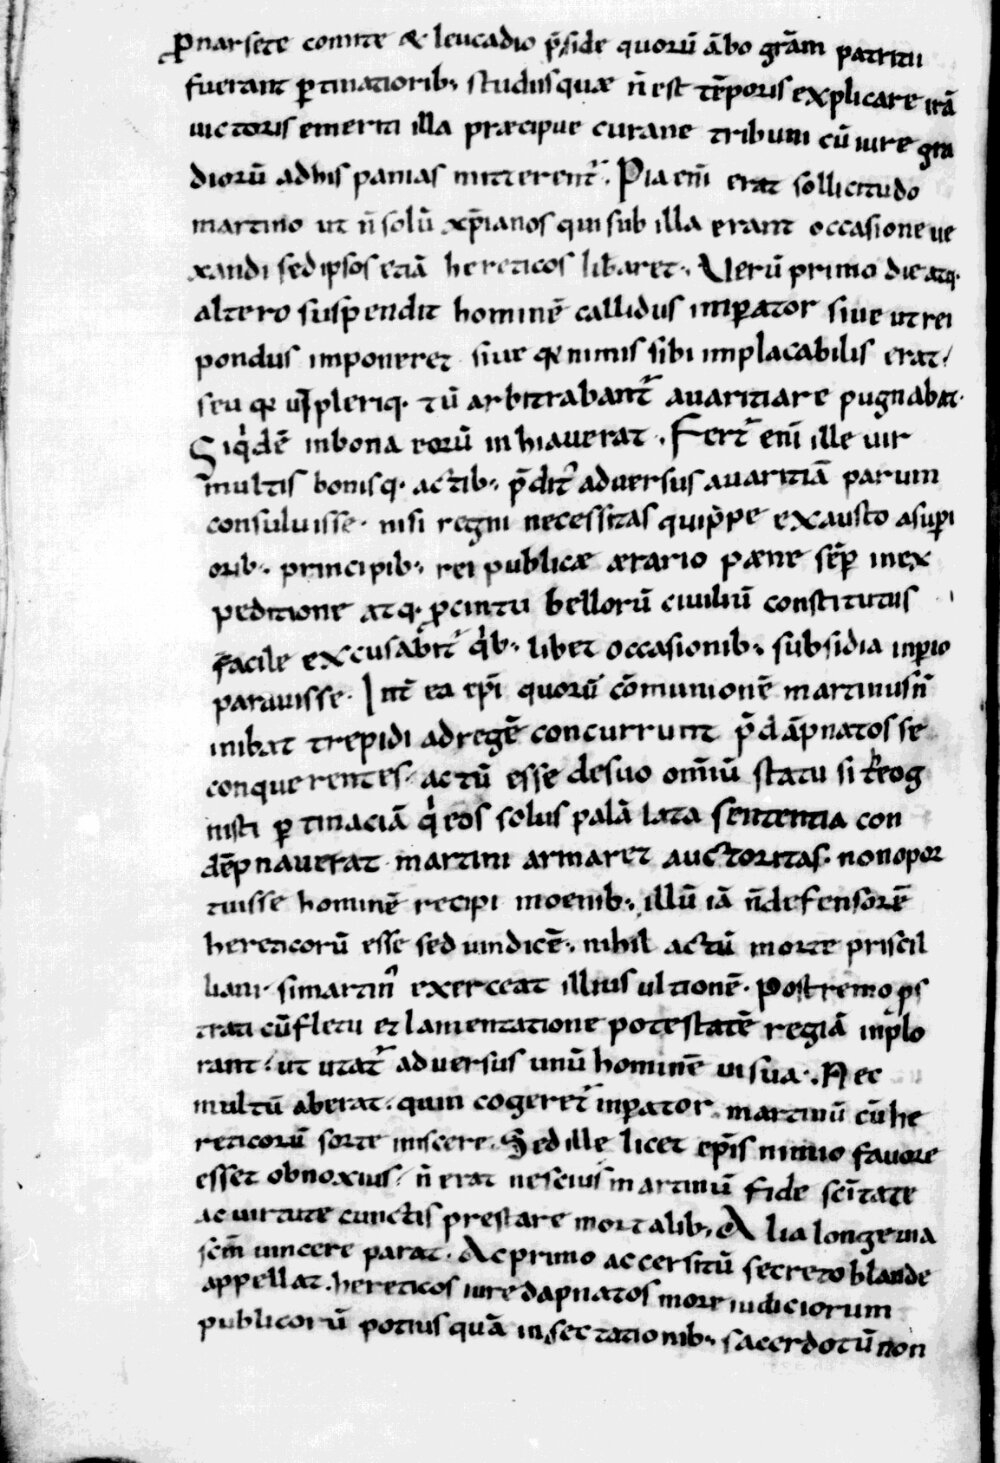 ꝓ narsete comite & leucadio p̄side quorū ābo grām patritii
fuerant ꝑtinatiorib; studiis quæ n̄ est tēporis explicare irā
uictoris emeriti illa præcipue cura ne tribuni cū iure gla
diorū ad hispanias mitterent᷑. Pia eni̅ erat sollicitudo
martino ut n̄ solū xp̄ianos qui sub illa erant occasione ue
xandi sed ipsos etiā hereticos lib̄aret. Verū primo die atq·
altero suspendit hominē callidus imꝑator siue ut rei
pondus imponeret siue q̄ nimis sibi implacabilis erat/
seu q̄ ut pleriq· tū arbitrabant᷑ auaritia re pugnabat·
Siqͥdē in bona eorū inhiauerat. Fert᷑ eni̅ ille uir
multis bonisq· actib; p̄dit᷑ aduersus auaritiā parum
consuluisse· nisi regni necessitas quip̄pe exausto a suꝑi
orib· principib; rei publicæ ærario pæne sēꝑ in ex
peditione atq· ꝓcintu bellorū ciuiliū constitutus
facile excusabit᷑ qͥb; libet occasionib; subsidia inꝑio
parauisse· Int̄ ea ep̄i quorū cōmunionē martinus n̄
inibat trepidi ad regē concurrunt p̄dāpnatos se
conquerentes· actū esse de suo omīū statu si theog
nisti ꝑtinaciā qͥ eos solus palā lata sententia con
dēpnauerat martini armaret auctoritas· non opor
tuisse hominē recipi moenib; illū iā n̄ defensorē
hereticorū esse sed uindicē· nihil actū morte priscil
liani· si martin᷒ exerceat illius ultionē· Postremo ps
trati cū fletu et lamentatione potestatē regiā inplo
rant· ut utat᷑ aduersus unū hominē ui sua·. Nec
multū aberat· quin cogeret᷑ inꝑator martinū cū he
reticorū sorte miscere· Sed ille licet ep̄is nimio fauore
esset obnoxius/ n̄ erat nescius martinū fide sc̄itate
ac uirtute cunctis prestare mortalib; Alia longe uia
sc̄m uincere parat· Ac primo accersitū secreto blande
appellat· hereticos iure dapnatos more iudiciorum
publicorū potius quā insectationib; sacerdotū non